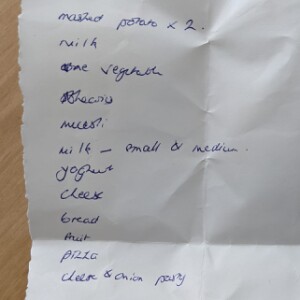 mashed potato x 2.
milk
one vegetable
muesli
milk – small & medium.
yoghurt
cheese
bread
fruit
pizza
cheese & onion pasty